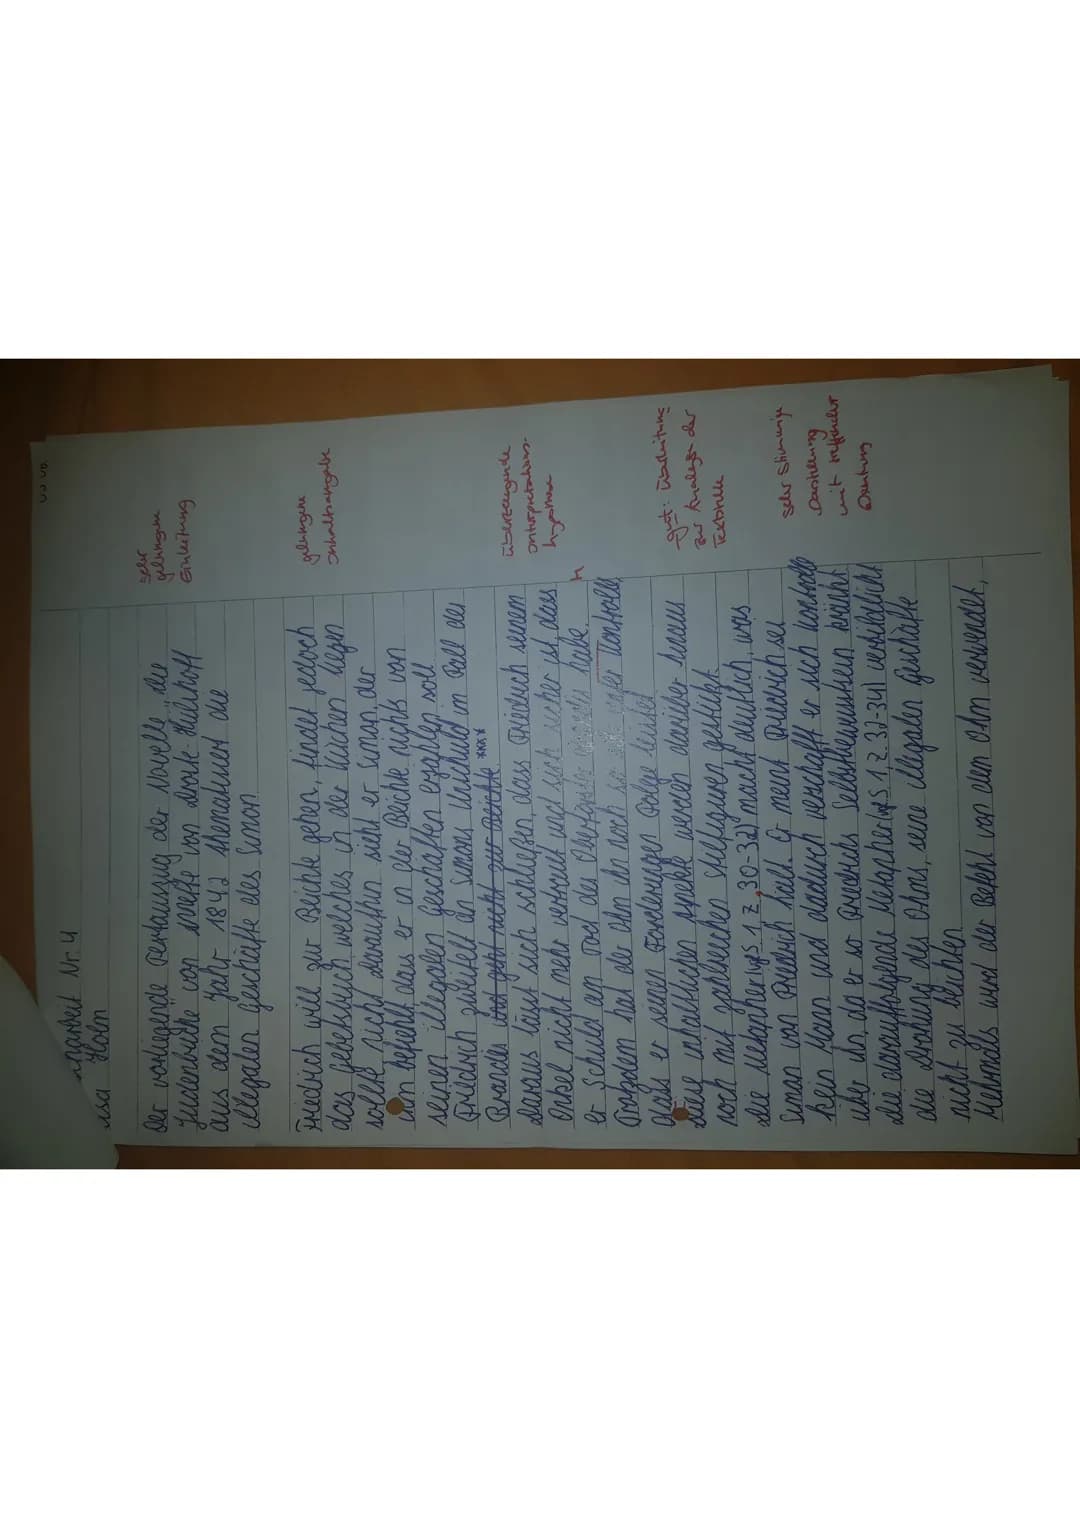 arbeit Nr. 4
Der vorliegende Textauszug der Novelle „die
Judenbuche" von Annette von Droste-Hülshoff
aus dem Jahr 1842 thematisiert die
illegalen Geschäfte des Simon.
sehr
gelungene
Einleitung
Friedrich will zur Beichte gehen, findet jedoch
das Gebetbuch welches in der Küchen liegen
sollte nicht daraufhin sieht er Simon, der
ihn befiehlt dass er in der Beichte nichts von
seinen illegalen Geschäften erzählen soll
Friedrich zweifelt an Simons Unschuld im Fall des
Brandis ***
gelungene
Inhaltsangabe
Daraus lässt sich schließen, dass Friedrich seinem
Onkel nicht mehr vertraut und sich sicher ist, dass
er Schuld am Tod des Oberförster habe.
Trotzdem hat der Ohm ihn noch so unter Kontrolle,
dass er seinen Forderungen Folge leistet
überzeugende
Interpretations-
hypothese
Diese inhaltlicher Aspekte werden darüber hinaus
noch mit zahlreichen Stilfiguren gestützt.
gut: Überleitung
zur Analyse der
Textstelle
Die Metapher (vgl S 1 Z. 30-32) macht deutlich, was
Simon von Friedrich hält. Er meint Friedrich sei
kein Mann und dadurch verschafft er sich Kontrolle
über ihn, da er so Friedrichs Selbstbewusstsein bricht
die darauffolgende Metapher (vgl S 1, Z. 33-34) verbildlicht
die Drohung des Ohms, seine illegalen Geschäfte
nicht zu beichten.
sehr stimmige
Darstellung
mit treffender
Deutung
Mehrmals wird der Befehl von dem Ohm verwendet,